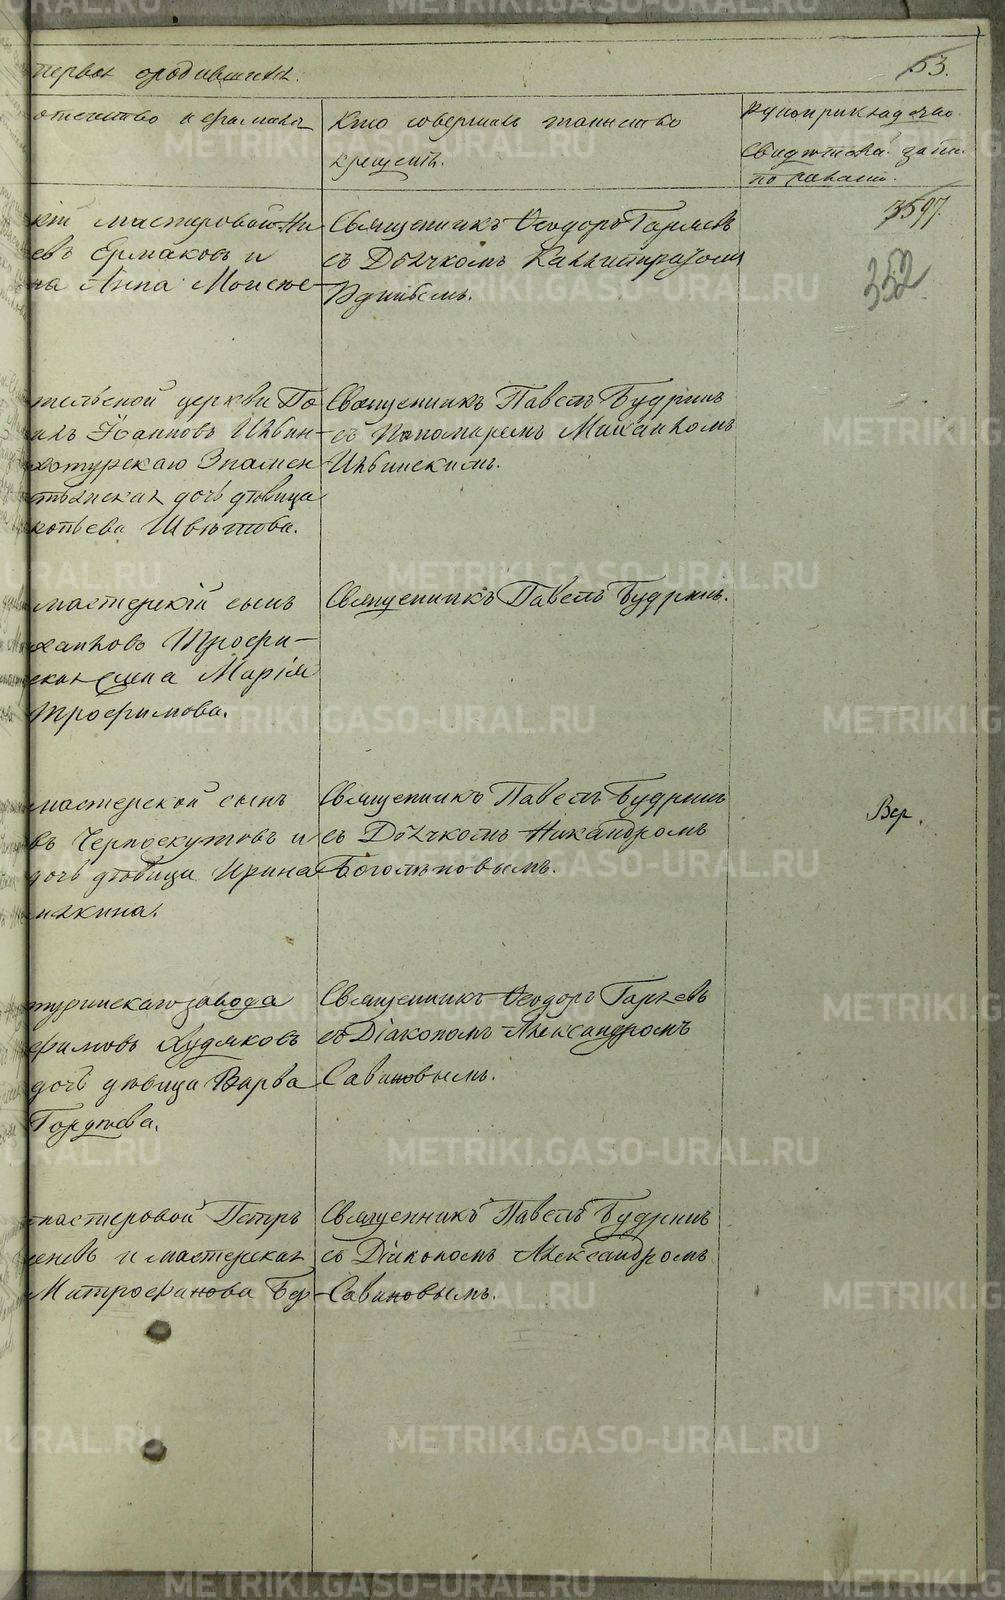 первая о родившихся.
53.
отечество и фамилія
Кто совершалъ таинство
крещенія.
Рукоприкладство
свидѣтелей записи
по желанію.
3597.
352
кій мастеровой
евъ Ермаковъ и
на Анна Моисѣе-
Священникъ Ѳеодоръ Гаряевъ
съ Дьячкомъ
Удинцемъ.
тельской церкви По
Іоанновъ Ивин-
хотурскаго Знамен
дочь дѣвица
копьева Шветова.
Священникъ Павелъ Будринъ
съ Пономаремъ Михаиломъ
Ивинскимъ.
мастерскій сынъ
хаиловъ Трофи-
ская жена Марія
Трофимова.
Священникъ Павелъ Будринъ.
мастерской сынъ
въ Черноскутовъ и
дочь дѣвица Ирина
нькина.
Священникъ Павелъ Будринъ
съ Дьячкомъ Никандромъ
Боголѣповымъ.
Вер.
туринскаго завода
фимовъ Худяковъ
дочь дѣвица Варва
Гордѣева.
Священникъ Ѳеодоръ Гаряевъ
съ Діакономъ Александромъ
Савиновымъ.
мастеровой Петръ
еневъ и мастерская
Митрофанова Бер-
Священникъ Павелъ Будринъ
съ Діакономъ Александромъ
Савиновымъ.
METRIKI.GASO-URAL.RU